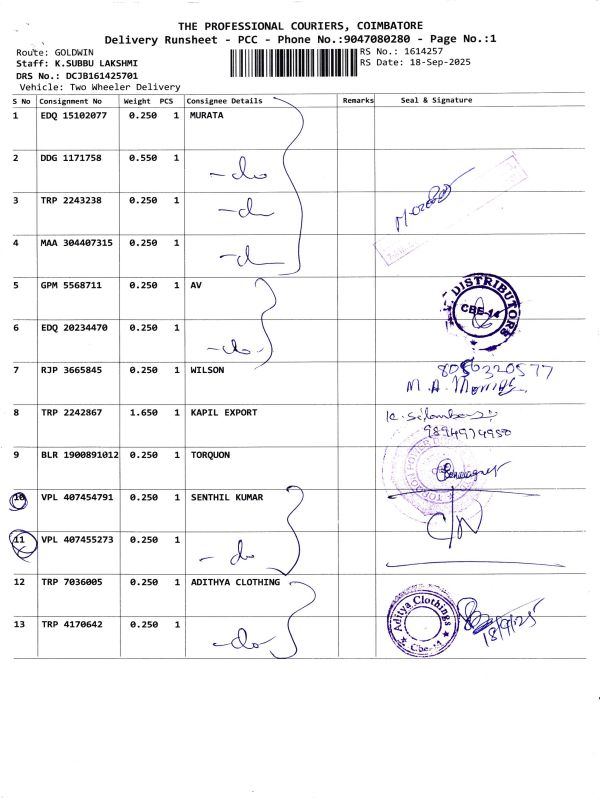 THE PROFESSIONAL COURIERS, COIMBATORE
Delivery Runsheet - PCC - Phone No.:9047080280 - Page No.:1
Route: GOLDWIN
Staff: K.SUBBU LAKSHMI
DRS No.: DCJB161425701
Vehicle: Two Wheeler Delivery
RS No.: 1614257
RS Date: 18-Sep-2025
S No Consignment No Weight PCS Consignee Details Remarks Seal & Signature
1 EDQ 15102077 0.250 1 MURATA
2 DDG 1171758 0.550 1 -do
3 TRP 2243238 0.250 1 -do
4 MAA 304407315 0.250 1 -do
5 GPM 5568711 0.250 1 AV
DISTRIBUTORS
CBE-14
6 EDQ 20234470 0.250 1 -do-
7 RJP 3665845 0.250 1 WILSON 8056320577
M.A.
8 TRP 2242867 1.650 1 KAPIL EXPORT
9894974950
9 BLR 1900891012 0.250 1 TORQUON
10 VPL 407454791 0.250 1 SENTHIL KUMAR
11 VPL 407455273 0.250 1 - do
12 TRP 7036005 0.250 1 ADITHYA CLOTHING
Aditya Clothings
Cbe-11
18/9/25
13 TRP 4170642 0.250 1 -do-